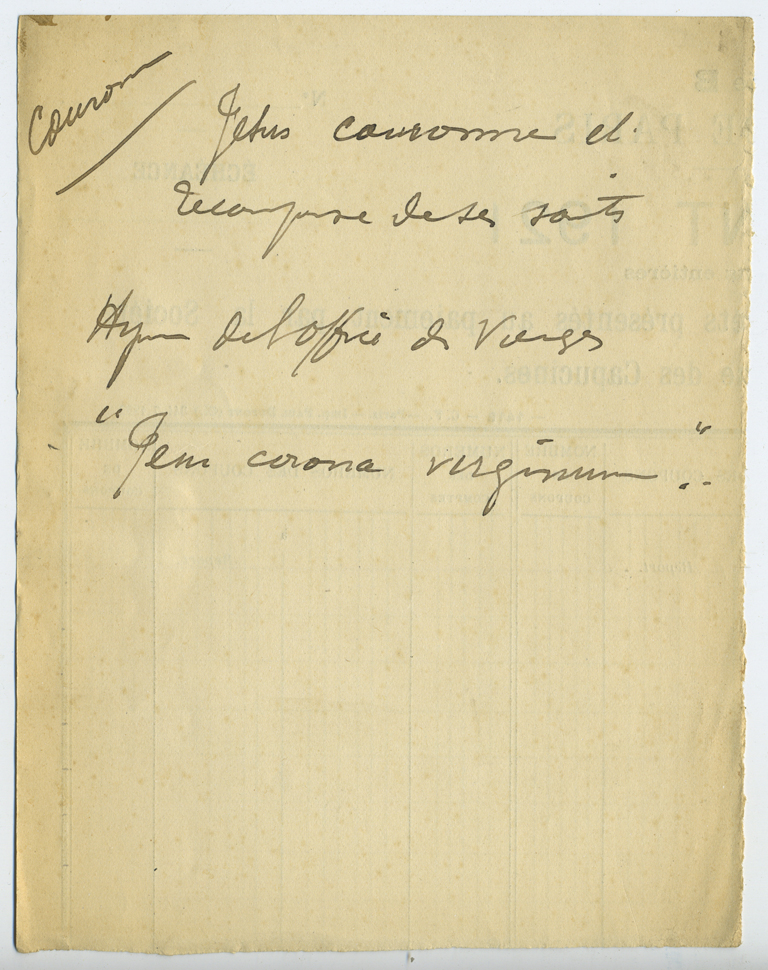 Couronn
Jésus couronne et
récompense de ses saints
Hymn de l'office des Vierges
"Jesu corona virginum".